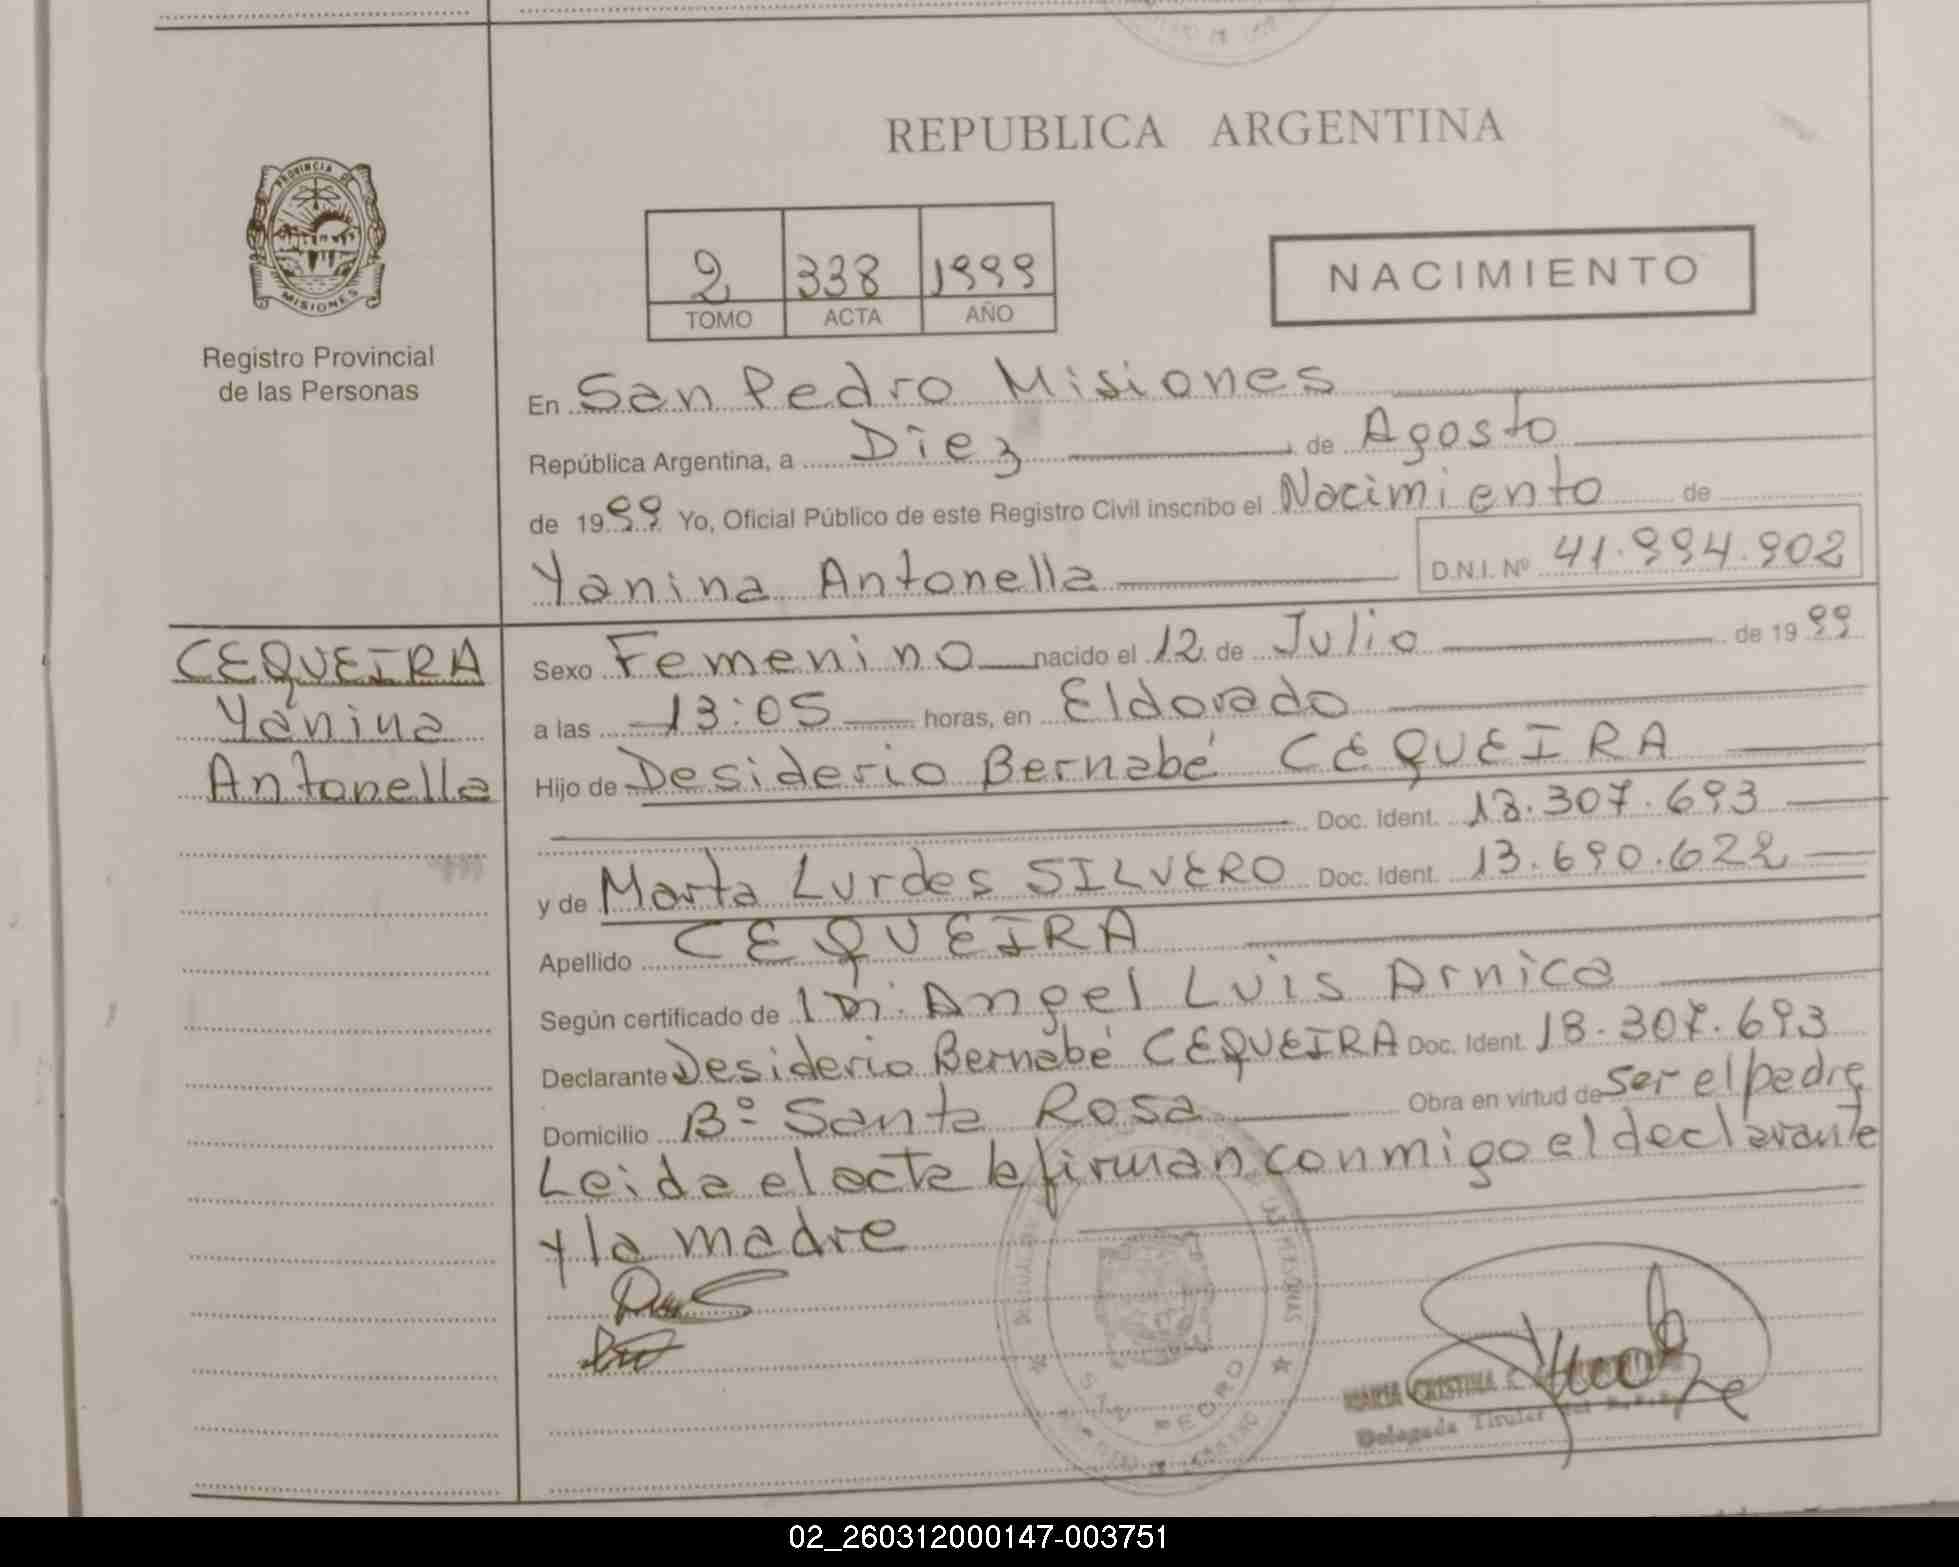 REPUBLICA ARGENTINA
PROVINCIA DE
MISIONES
Registro Provincial
de las Personas
2 338 1999
TOMO ACTA AÑO
NACIMIENTO
En San Pedro Misiones
República Argentina, a Diez de Agosto
de 1999 Yo, Oficial Público de este Registro Civil inscribo el Nacimiento de
Yanina Antonella D.N.I. Nº 41.994.902
CEQUEIRA
Yanina
Antonella
Sexo Femenino nacido el 12 de Julio de 1999
a las 13:05 horas, en Eldorado
Hijo de Desiderio Bernabé CEQUEIRA
Doc. Ident. 18.307.693
y de Marta Lurdes SILVERO Doc. Ident. 13.690.622
Apellido CEQUEIRA
Según certificado de Angel Luis Arnica
Declarante Desiderio Bernabé CEQUEIRA Doc. Ident. 18.307.693
Domicilio Bº Santa Rosa Obra en virtud de ser el padre
Leida el acta la firman conmigo el declarante
y la madre
SAN PEDRO
MARIA CRISTINA
Delegada Titular del
02_260312000147-003751